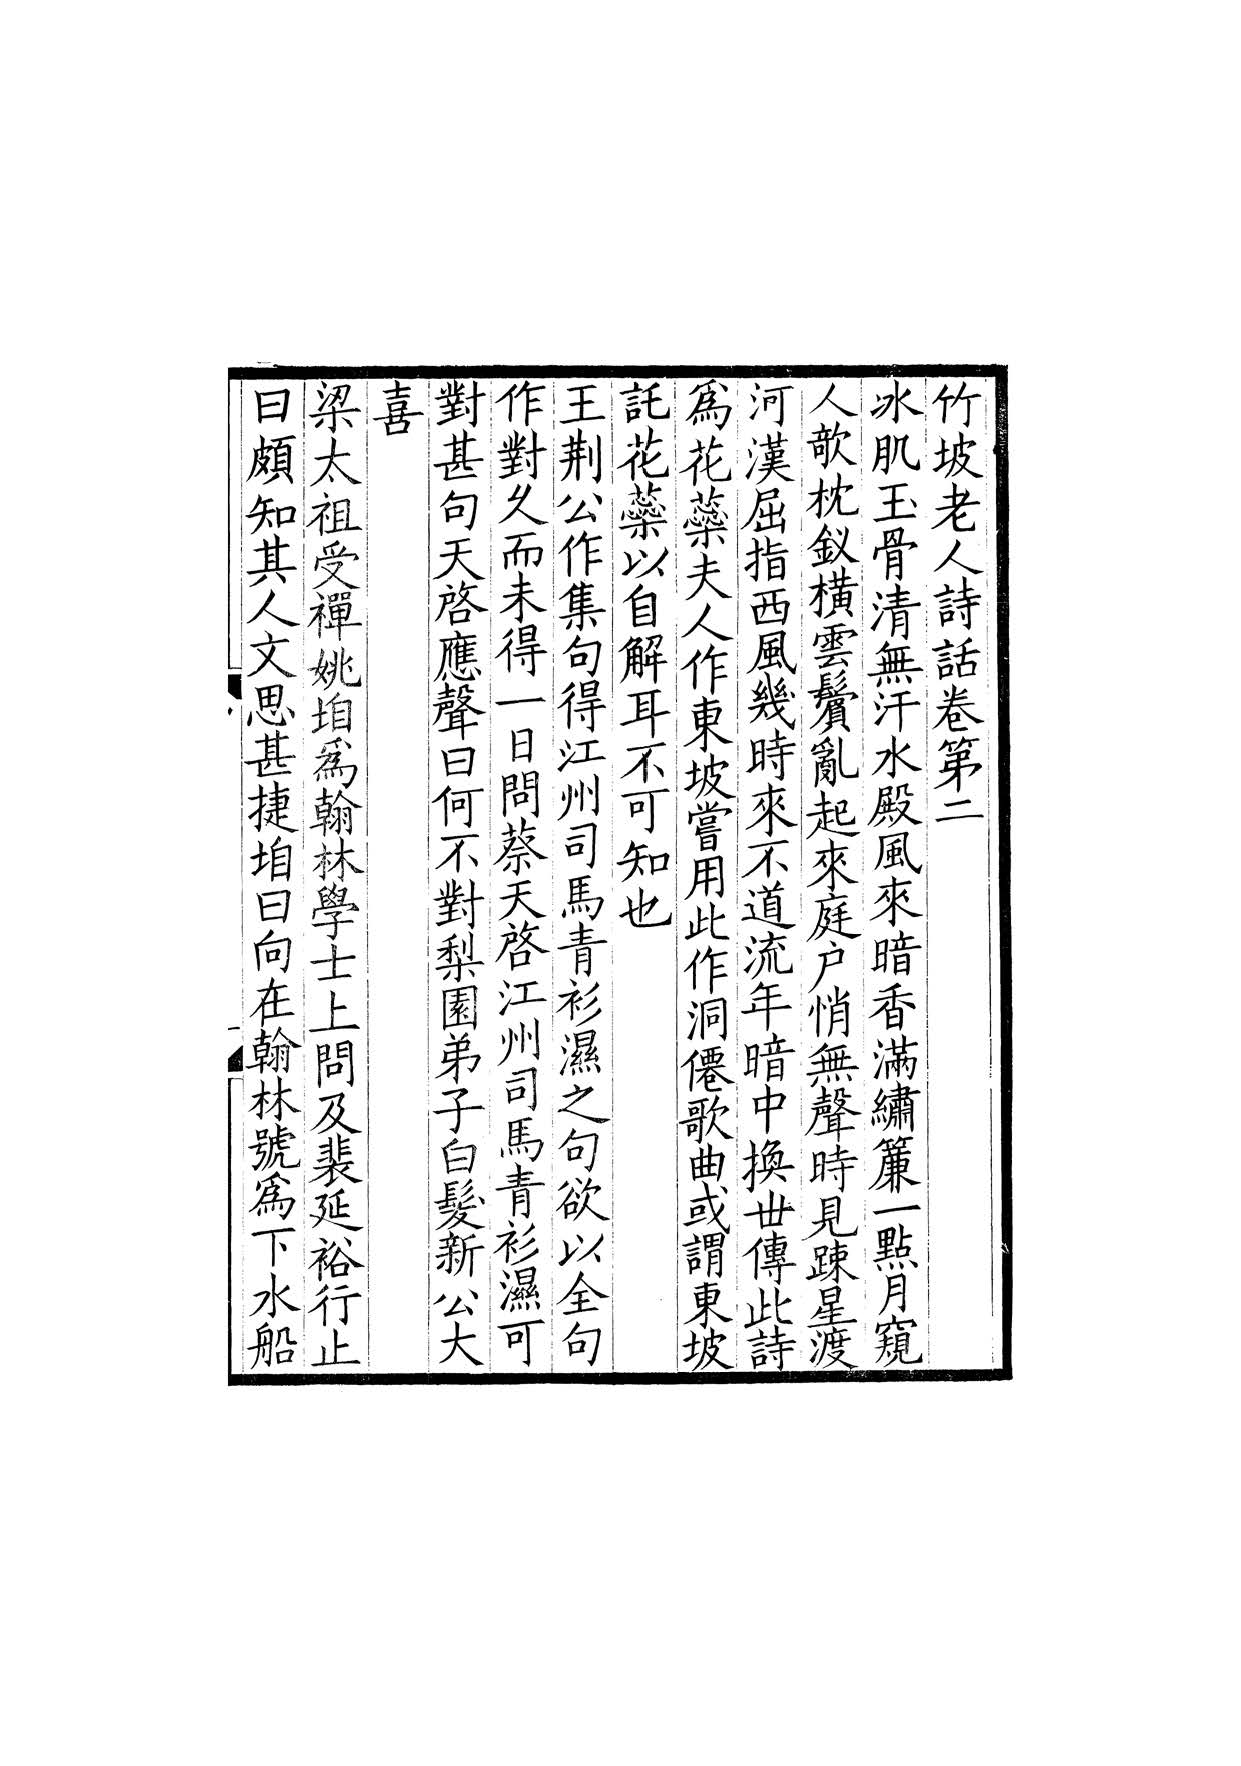 竹坡老人詩話卷第二
冰肌玉骨清無汗水殿風來暗香滿繡簾一點月窺
人欹枕釵橫雲鬢亂起來庭户悄無聲時見踈星渡
河漢屈指西風幾時來不道流年暗中換世傳此詩
爲花蘂夫人作東坡嘗用此作洞僊歌曲或謂東坡
託花蘂以自解耳不可知也
王荆公作集句得江州司馬青衫濕之句欲以全句
作對久而未得一日問蔡天啓江州司馬青衫濕可
對甚句天啓應聲曰何不對梨園弟子白髮新公大
喜
梁太祖受禪姚垍爲翰林學士上問及裴延裕行止
曰頗知其人文思甚捷垍曰向在翰林號爲下水船